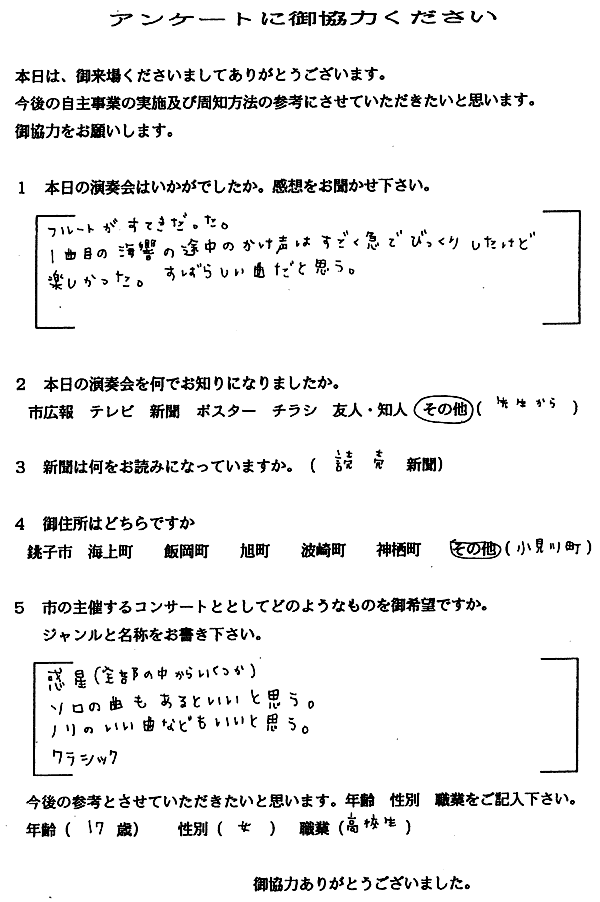 アンケートに御協力ください
本日は、御来場くださいましてありがとうございます。
今後の自主事業の実施及び周知方法の参考にさせていただきたいと思います。
御協力をお願いします。
1 本日の演奏会はいかがでしたか。感想をお聞かせ下さい。
フルートがすてきだった。
1曲目の海響の途中のかけ声はすごく急でびっくりしたけど
楽しかった。 すばらしい曲だと思う。
2 本日の演奏会を何でお知りになりましたか。
市広報 テレビ 新聞 ポスター チラシ 友人・知人 その他 ( 先生から )
3 新聞は何をお読みになっていますか。( 読売 新聞)
4 御住所はどちらですか
銚子市 海上町 飯岡町 旭町 波崎町 神栖町 その他 (小見川町)
5 市の主催するコンサートととしてどのようなものを御希望ですか。
ジャンルと名称をお書き下さい。
惑星(全部の中からいくつか)
ソロの曲もあるといいと思う。
ノリのいい曲などもいいと思う。
クラシック
今後の参考とさせていただきたいと思います。年齢 性別 職業をご記入下さい。
年齢( 17 歳) 性別( 女 ) 職業(高校生)
御協力ありがとうございました。